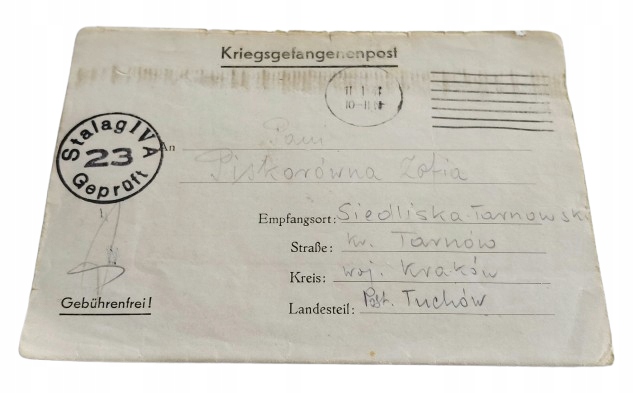 Kriegsgefangenenpost
10-11
Stalag IV A
23
Geprüft
An Pani
Piskorówna Zofia
Empfangsort: Siedliska-Tarnowski
Straße: kr. Tarnów
Kreis: woj. Kraków
Landesteil: Post. Tuchów
Gebührenfrei!